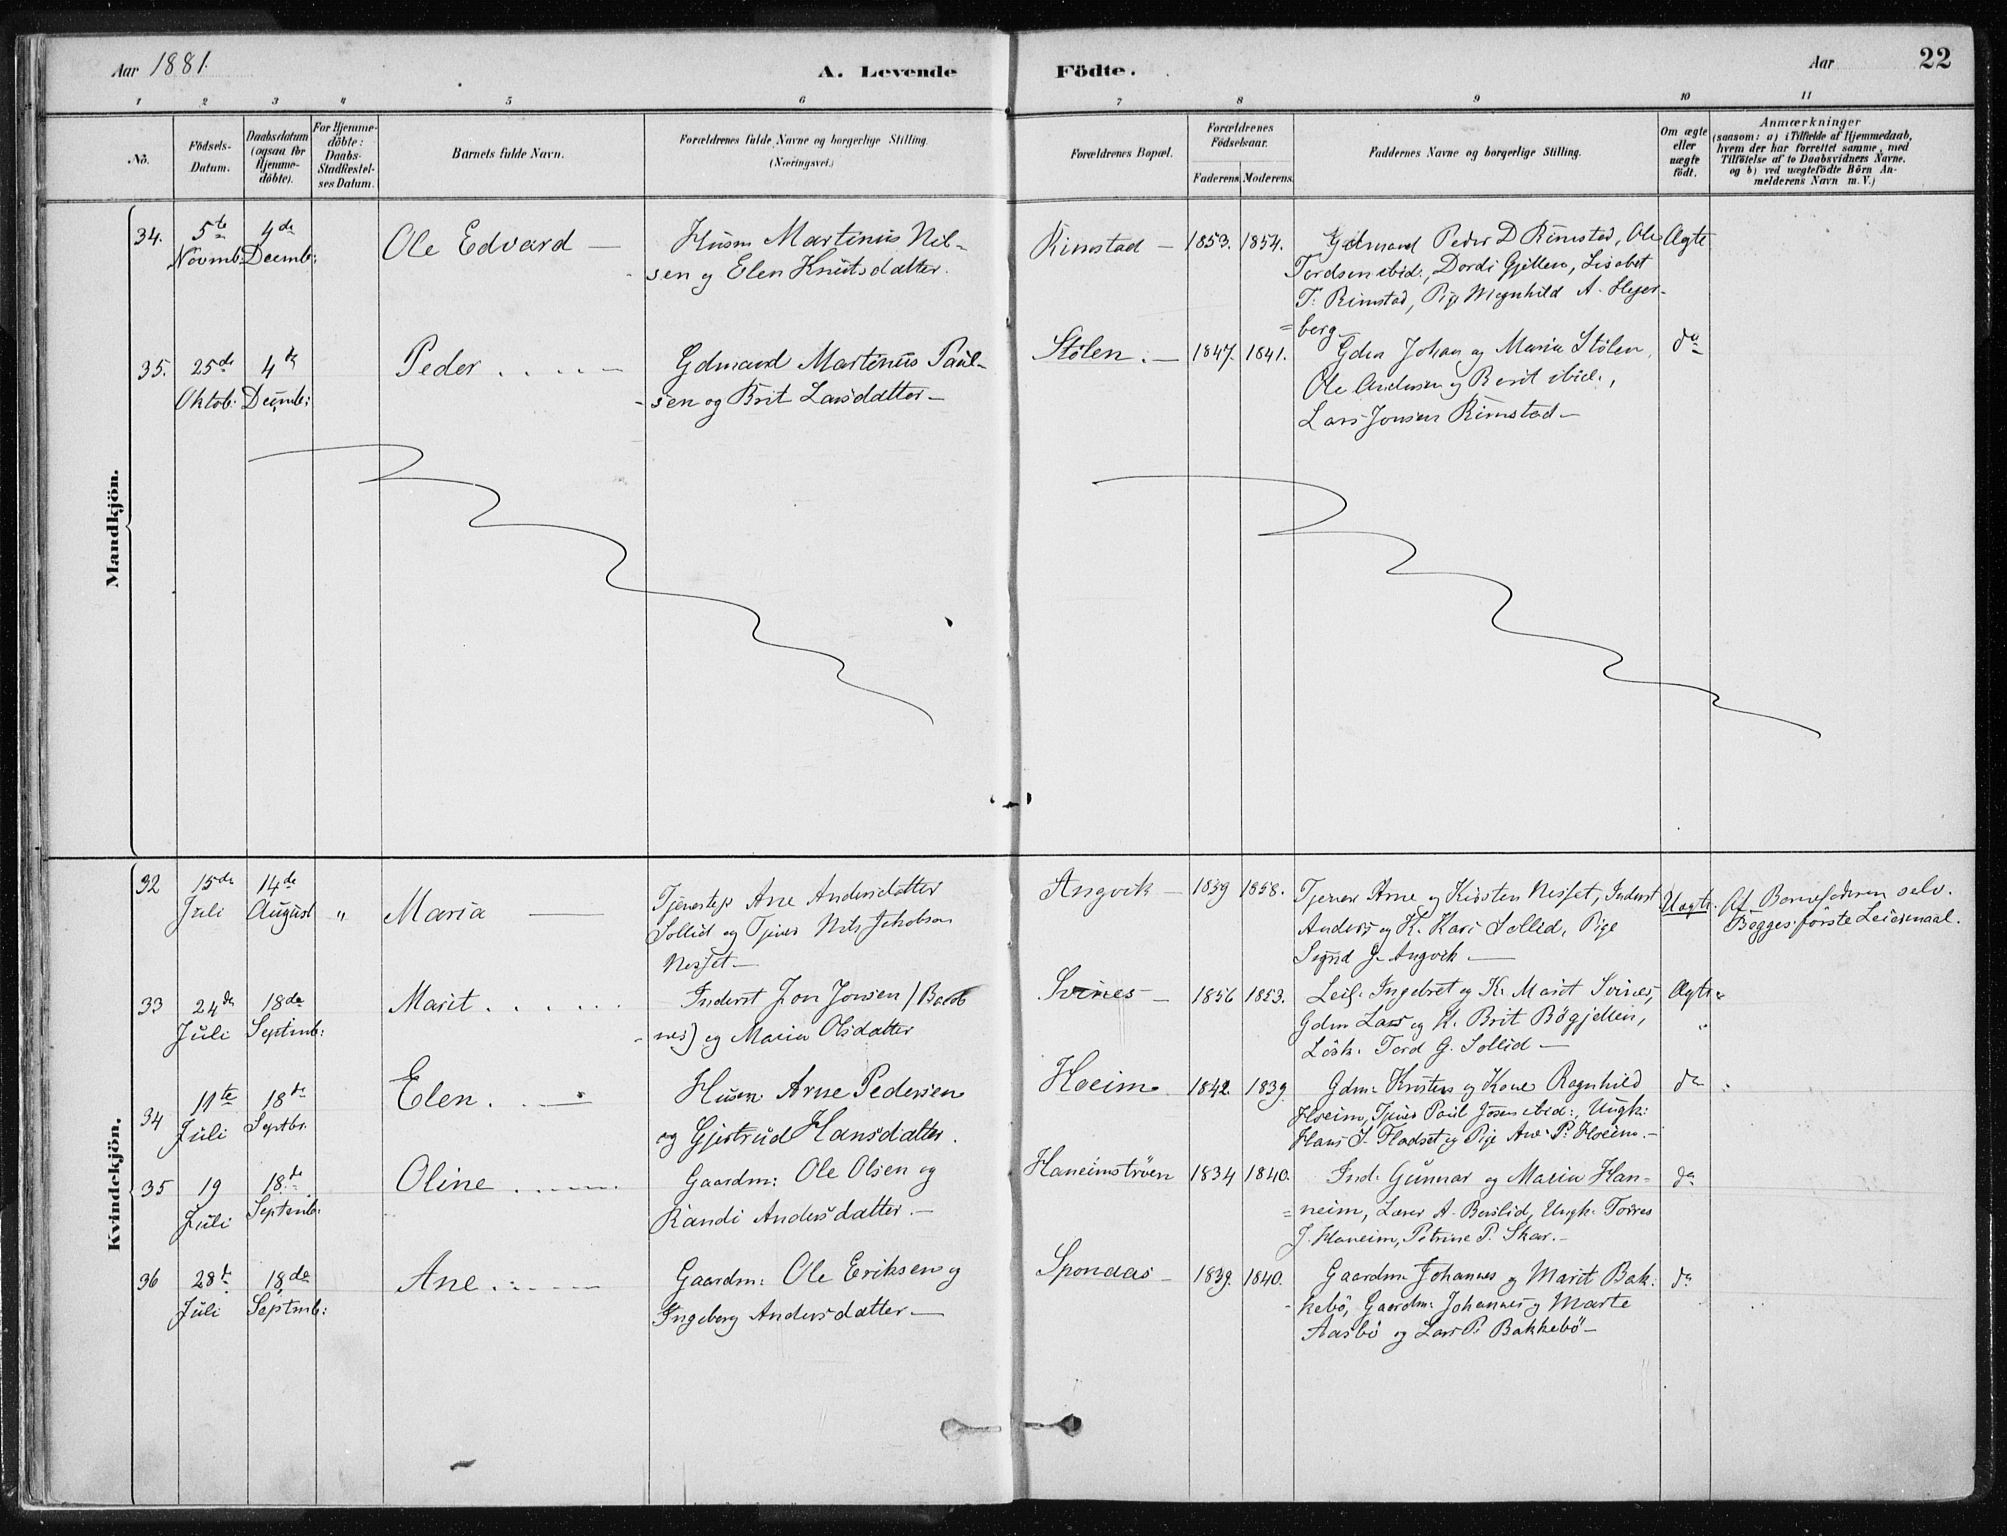 Aar 1881.
A. Levende
Födte.
Aar
22
1 2 3 4 5 6 7 8 9 10 11
No.
Födsels-
Datum.
Daabsdatum
(ogsaa for
Hjemme-
döbte).
For Hjemme-
döbte:
Daabs-
Stadfæstel-
ses Datum.
Barnets fulde Navn.
Forældrenes fulde Navne og borgerlige Stilling
(Næringsvei.)
Forældrenes Bopæl.
Forældrenes
Födselsaar.
Faderens. Moderens.
Faddernes Navne og borgerlige Stilling.
Om ægte
eller
uægte
födt.
Anmærkninger
(saasom: a) i Tilfælde af Hjemmedaab,
hvem der har forrettet samme, med
Tilföielse af to Daabsvidners Navne.
og b) ved uægtefödte Börn An-
melderens Navn m. V.)
Mandkjön.
34.
5te
Novmb:
4de
Decmb:
Ole Edvard —
Husm Martinus Nil-
sen og Elen Knutsdatter.
Rimstad —
1853. 1854.
Gdmand Peder D Rimstad, Ole
Tordsen ibid., Dordi Gjellen, Lisabet
T. Rimstad, Pige Magnhild A. Heger-
=berg
Ægte
35.
25de
Oktob:
4de
Decmb:
Peder . . . . . —
Gdmand Martinus Paul-
-sen og Brit Larsdatter —
Stölen. —
1847. 1841.
Gdm Johan og Maria Stölen,
Ole Andersen og Berit ibid.,
Lars Jonsen Rimstad —
do
Kvindekjön.
32
15de
Juli
14de
August
"
Maria —
Tjenestep Ane Andersdatter
Sollid og Tjener Nils Jakobsen
Nesset —
Angvik —
1859 1858.
Tjener Arne og Kirsten Nesset, Inderst
Anders og K. Kari Sollid, Pige
Sigrid J. Angvik —
Uægte.
Af Barnefaderen selv.
Begges förste Leiermaal.
33
24de
Juli
18de
Septmb:
Marit . . . . . .
Inderst Jon Jonsen (Bard-
nes) og Maria Olsdatter
Svines —
1856 1853.
Leil: Ingebret og K. Marit Svines,
Gdm Lars og K. Brit Bögjellen,
Lösk. Tord G. Sollid —
Ægte
34
11te
Juli
18de
Septbr.
Elen. . —
Husm. Arne Pedersen
og Gjertrud Hansdatter.
Hoeim
1842. 1839
Gdm: Kristen og Kone Ragnhild
Hoeim, Tjener Paul Josen ibid:, Ungk:
Hans J. Fladset og Pige Ane P. Hoeim. —
do
35
19
Juli
18de
Septemb:
Oline . . . . .
Gaardm: Ole Olsen og
Randi Andersdatter. —
Haneimströen
1834 1840.
Ind: Gunnar og Maria Han-
=neim, Lærer A. Berslid, Ungk. Torres
J. Haneim, Petrine P. Skar. —
do
36
28de
Juli
18de
Septmb:
Ane . . . —
Gaardm: Ole Eriksen og
Ingeborg Andersdatter —
Spondas —
1839. 1840.
Gaardm Johannes og Marit Bak:
kebö, Gaardm: Johannes og Marte
Aasbö og Lars P. Bakkebö —
do